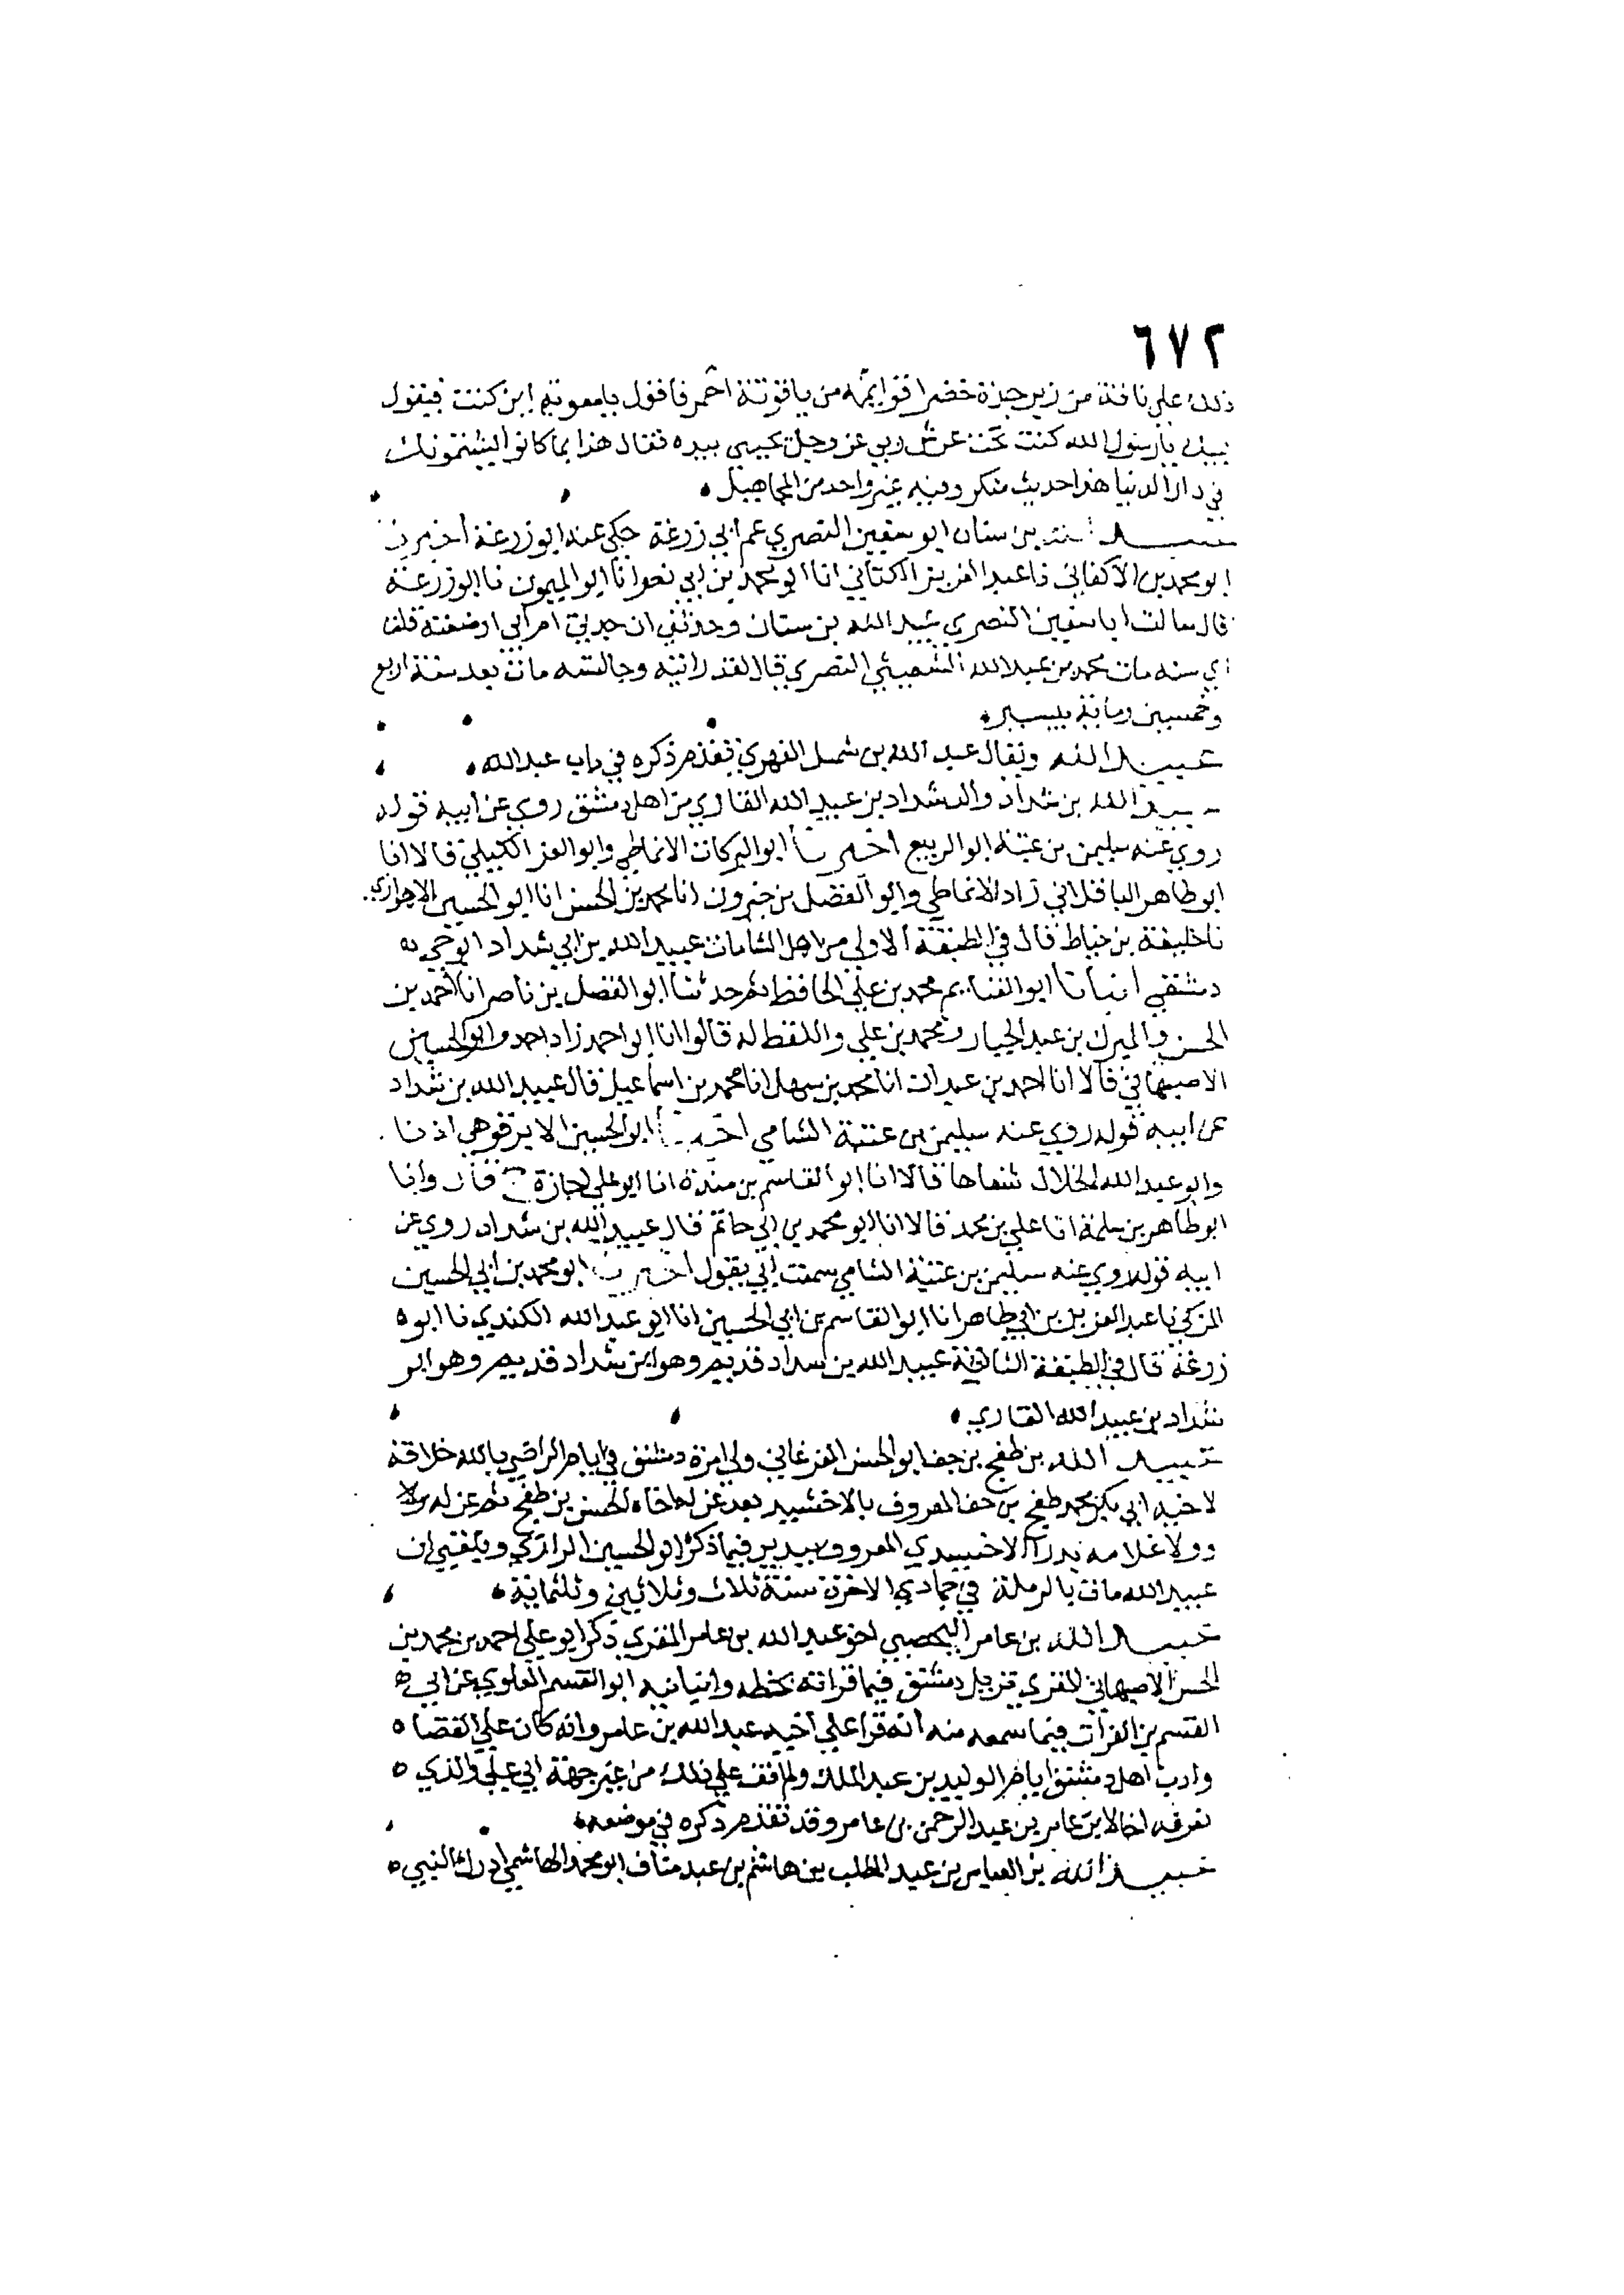 ٦٧٢
ذلك على ناقة من زبرجدة خضرا قوايمه من ياقوتة احمر فاقول يا معوية اين كنت فيقول
لبيك يا رسول الله كنت تحت عرش ربي عز وجل يحيى بيده فقال هذا بما كانوا يشتمونك
في دار الدنيا هذا حديث منكر وفيه غير واحد من المجاهيل
عبيد الله بن سنان ابو سفين النصري عم ابي زرعة حكى عنه ابو زرعة اخبرنا
ابو محمد بن الاكفاني نا عبد العزيز الكتاني انا ابو محمد بن ابي نصر انا ابو الميمون نا ابو زرعة
قال سالت ابا سفين النصري عبيد الله بن سنان وحدثني ان جدتي ام ابي ارضعته قلت
اي سنه مات محمد بن عبد الله الشعيثي النصري قال لقد راتيه وجالسته مات بعد سنة اربع
وخمسين وماية بيسير
عبيد الله ويقال عبد الله بن شمل الفهري تقدم ذكره في باب عبد الله
عبيد الله بن شداد والد شداد بن عبيد الله القاري من اهل دمشق روي عن ابيه قوله
روي عنه سليمن بن عتبة ابو الربيع اخبرنا ابو البركات الانماطي وابو العز الكيلي قالا انا
ابو طاهر الباقلاني زاد الانماطي وابو الفضل بن خيرون انا محمد بن الحسن انا ابو الحسين الاهوازي
نا خليفة بن خياط قال في الطبقة الاولى من اهل الشامات عبيد الله بن ابي شداد ابو حي ه
دمشقي انبانا ابو الغنايم محمد بن علي الحافظ ثم حدثنا ابو الفضل بن ناصر انا احمد بن
الحسن والمبرك بن عبد الجبار ومحمد بن علي واللفظ له قالوا انا ابو احمد زاد احمد وابو الحسين
الاصبهاني قالا انا احمد بن عبدان انا محمد بن سهل انا محمد بن اسماعيل قال عبيد الله بن شداد
عن ابيه قوله روي عنه سليمن بن عتبة الشامي اخبرنا ابو الحسين الابرقوهي اذنا
وابو عبد الله الخلال شفاها قالا انا ابو القاسم بن مندة انا ابو علي اجازة ح قال وانا
ابو طاهر بن سلمة انا علي بن محمد قالا انا ابو محمد بن ابي حاتم قال عبيد الله بن شداد روي عن
ابيه قوله روي عنه سليمن بن عتبة الشامي سمعت ابي يقول اخبرنا ابو محمد بن ابي الحسين
المزكي نا عبد العزيز بن ابي طاهر انا ابو القاسم بن ابي الحسين انا ابو عبد الله الكندي نا ابو ه
زرعة قال في الطبقة الثانية عبيد الله بن شداد قديم وهو ابن شداد قديم وهو ابو
شداد بن عبيد الله القاري
عبيد الله بن طغج بن جف ابو الحسن الفرغاني ولي امرة دمشق في ايام الراضي بالله خلافة
لاخيه ابي بكر محمد طغج بن جف المعروف بالاخشيد بعد عزله اخاه الحسن بن طغج ثم عزله
وولا غلامه بدرا الاخشيدي المعروف ببدير فيما ذكر ابو الحسين الرازي وبلغني ان
عبيد الله مات بالرملة في جمادي الاخرة سنة ثلاث وثلاثين وثلثماية
عبيد الله بن عامر اليحصبي اخو عبد الله بن عامر المقري ذكر ابو علي احمد بن محمد بن
الحسن الاصبهاني المقري نزيل دمشق فيما قراته بخطه وانبانيه ابو القسم العلوي عن ابي ه
القسم بن الفرات فيما سمعه منه انه قرا على اخيه عبد الله بن عامر وانه كان على القضا ه
وادب اهل دمشق ايام الوليد بن عبد الملك ولم اقف على ذلك من غير جهة ابي علي والذي ه
نعرفه اخا لابن عامر بن عبد الرحمن بن عامر وقد تقدم ذكره في موضعه
عبيد الله بن العباس بن عبد المطلب بن هاشم بن عبد مناف ابو محمد الهاشمي ادرك النبي ه